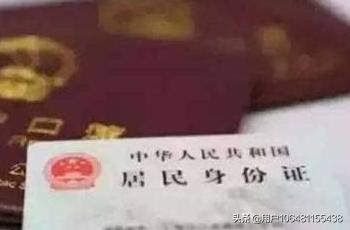 中华人民共和国
居民身份证
头条@用户106481155438